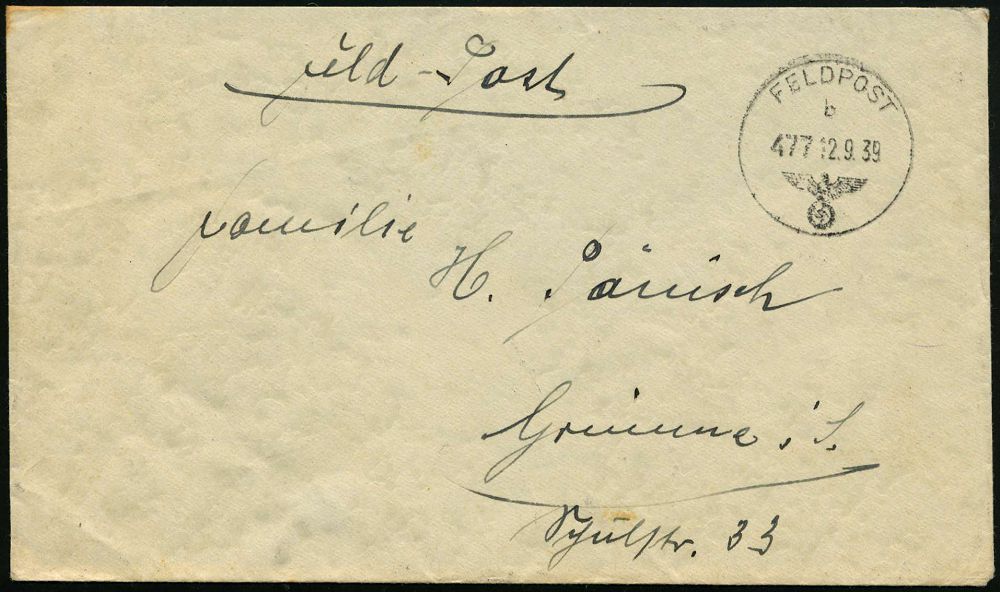 Feld-Post
FELDPOST
b
477 12.9.39
Familie
H. Jänisch
Grimma i/S.
Schulstr. 33